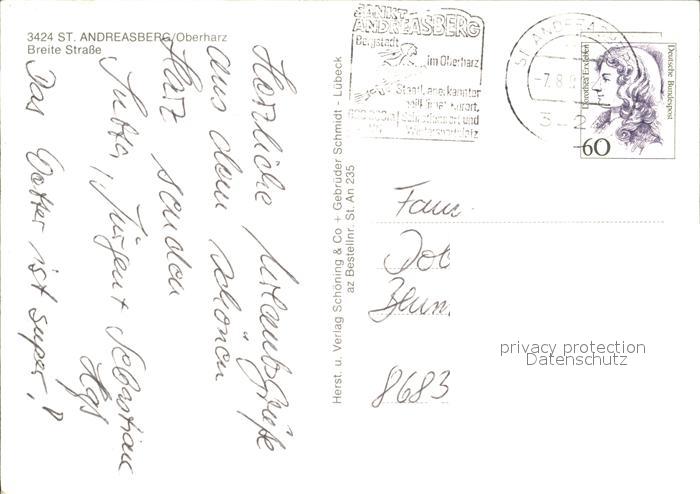 3424 ST. ANDREASBERG/Oberharz
Breite Straße
Herzliche Urlaubsgrüße
aus dem schönen
Harz senden
Jutta, Jürgen + Sebastian
Das Wetter ist super!
Herst. u. Verlag Schöning & Co + Gebrüder Schmidt - Lübeck
az Bestellnr. St. An 235
SANKT
ANDREASBERG
Bergstadt
im Oberharz
Staatl. anerkannter
heilklimat. Kurort,
und
Wintersportplatz
ST. ANDREASBERG
-7.8.
Dorothea Erxleben
Deutsche Bundespost
60
Fam
8683
privacy protection
Datenschutz